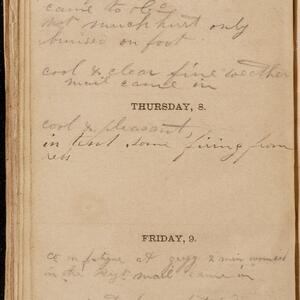 came to
Not much hurt only
bruised on foot
cool & clear fine weather
mail came in
THURSDAY, 8.
cool & pleasant,
in tent some firing from
rebs
FRIDAY, 9.
on fatigue at & men wounded
in the Regt mail came in